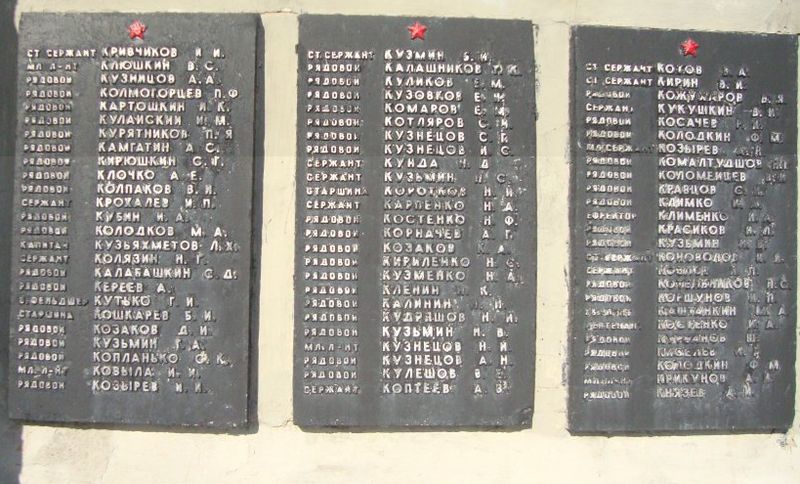 СТ. СЕРЖАНТ КРИВЧИКОВ И. И.
МЛ. Л-НТ КЛЮШКИН В. С.
РЯДОВОЙ КУЗНИЦОВ А. А.
РЯДОВОЙ КОЛМОГОРЦЕВ П. Ф.
РЯДОВОЙ КАРТОШКИН И. К.
РЯДОВОЙ КУЛАЙСКИЙ И. М.
РЯДОВОЙ КУРЯТНИКОВ П. Я.
РЯДОВОЙ КАМГАТИН А. С.
РЯДОВОЙ КИРЮШКИН С. Г.
РЯДОВОЙ КЛОЧКО А. Е.
РЯДОВОЙ КОЛПАКОВ В. И.
СЕРЖАНТ КРОХАЛЕВ И. П.
РЯДОВОЙ КУБИН И. А.
РЯДОВОЙ КОЛОДКОВ М. А.
КАПИТАН КУЗЬЯХМЕТОВ Л. Х.
СЕРЖАНТ КОЛЯЗИН Н. Г.
РЯДОВОЙ КАЛАБАШКИН С. Д.
РЯДОВОЙ КЕРЕЕВ А.
КУТЬКО Г. И.
СТАРШИНА КОШКАРЕВ Б. И.
РЯДОВОЙ КОЗАКОВ Д. И.
РЯДОВОЙ КУЗЬМИН Г. А.
РЯДОВОЙ КОПЛАНЬКО Ф. К.
МЛ. Л-НТ КОВЫЛА И. И.
РЯДОВОЙ КОЗЫРЕВ И. И.
СТ. СЕРЖАНТ КУЗМИН Б. И.
РЯДОВОЙ КАЛАШНИКОВ
РЯДОВОЙ КУЛИКОВ М.
РЯДОВОЙ КУЗОВКОВ Е.
РЯДОВОЙ КОМАРОВ Е. М.
РЯДОВОЙ КОТЛЯРОВ С.
РЯДОВОЙ КУЗНЕЦОВ С. Г.
РЯДОВОЙ КУЗНЕЦОВ И. С.
СЕРЖАНТ КУНДА Д.
СЕРЖАНТ КУЗЬМИН С.
СТАРШИНА КОРОТКОВ Н. И.
СЕРЖАНТ КАРПЕНКО Н. А.
РЯДОВОЙ КОСТЕНКО Н. Ф.
РЯДОВОЙ КОРНАЧЕВ А. Г.
РЯДОВОЙ КОЗАКОВ А.
РЯДОВОЙ КИРИЛЕНКО Н. С.
РЯДОВОЙ КУЗМЕНКО Н. А.
РЯДОВОЙ КЛЕНИН К.
РЯДОВОЙ КАЛИНИН Н.
РЯДОВОЙ КУДРЯШОВ Н.
РЯДОВОЙ КУЗЬМИН Н. В.
МЛ. Л-НТ КУЗНЕЦОВ Н. И.
РЯДОВОЙ КУЗНЕЦОВ А. Н.
РЯДОВОЙ КУЛЕШОВ В. Е.
СЕРЖАНТ КОПТЕЕВ А. З.
СТ. СЕРЖАНТ КОТОВ А.
СТ. СЕРЖАНТ КИРИН В. И.
РЯДОВОЙ КОЖУХАРОВ
СЕРЖАНТ КУКУШКИН В.
РЯДОВОЙ КОСАЧЕВ
РЯДОВОЙ КОЛОДКИН М.
МЛ. СЕРЖАНТ КОЗЫРЕВ
РЯДОВОЙ КОМАЛТУДШОВ
РЯДОВОЙ КОЛОМЕЙЦЕВ
РЯДОВОЙ КРАВЦОВ
РЯДОВОЙ КЛИМКО А.
ЕФРЕЙТОР КЛИМЕНКО И. А.
РЯДОВОЙ КРАСИКОВ
РЯДОВОЙ КУЗЬМИН
СТ. СЕРЖАНТ КОНОВОЛОВ
СЕРЖАНТ
РЯДОВОЙ П. С.
РЯДОВОЙ КОРШУНОВ И. П.
М. А.
ЛЕЙТЕНАНТ КОСТЕНКО А.
РЯДОВОЙ
РЯДОВОЙ КИСЕЛЕВ
РЯДОВОЙ КОЛОДКИН Ф. М.
КРИКУНОВ А.
РЯДОВОЙ КНЯЗЕВ